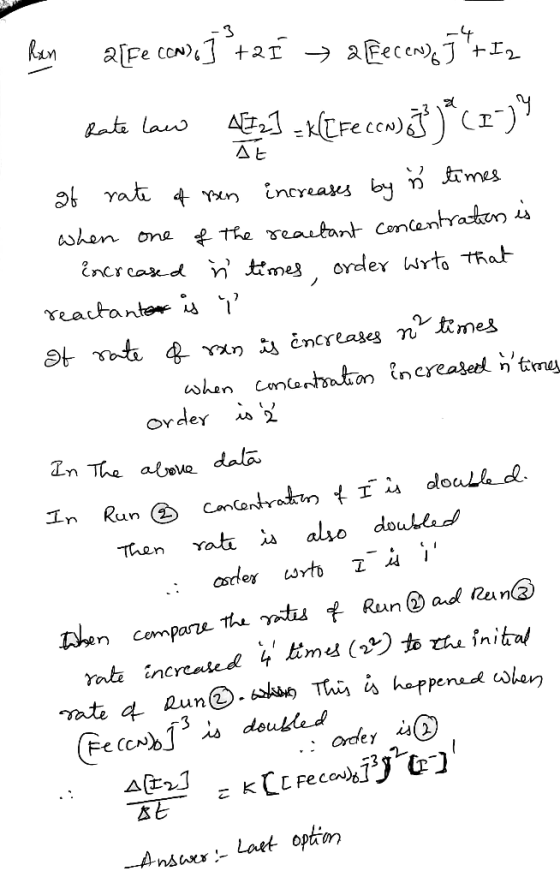 Rxn 2[Fe(CN)6]^-3 + 2I^- → 2[Fe(CN)6]^-4 + I2
Rate law Δ[I2]/Δt = K([Fe(CN)6]^-3)^x (I^-)^y
If rate of rxn increases by 'n' times
when one of the reactant concentration is
increased 'n' times, order wrto that
reactant is '1'
If rate of rxn is increases n^2 times
when concentration increased 'n' times
order is '2'
In The above data
In Run ② concentration of I^- is doubled.
Then rate is also doubled
∴ order wrto I^- is '1'
When compare the rates of Run ② and Run ③
rate increased '4' times (2^2) to the initial
rate of Run ②. This is happened when
[Fe(CN)6]^-3 is doubled
∴ order is ②
∴ Δ[I2]/Δt = K[[Fe(CN)6]^-3]^2 [I^-]^1
Answer :- Last option